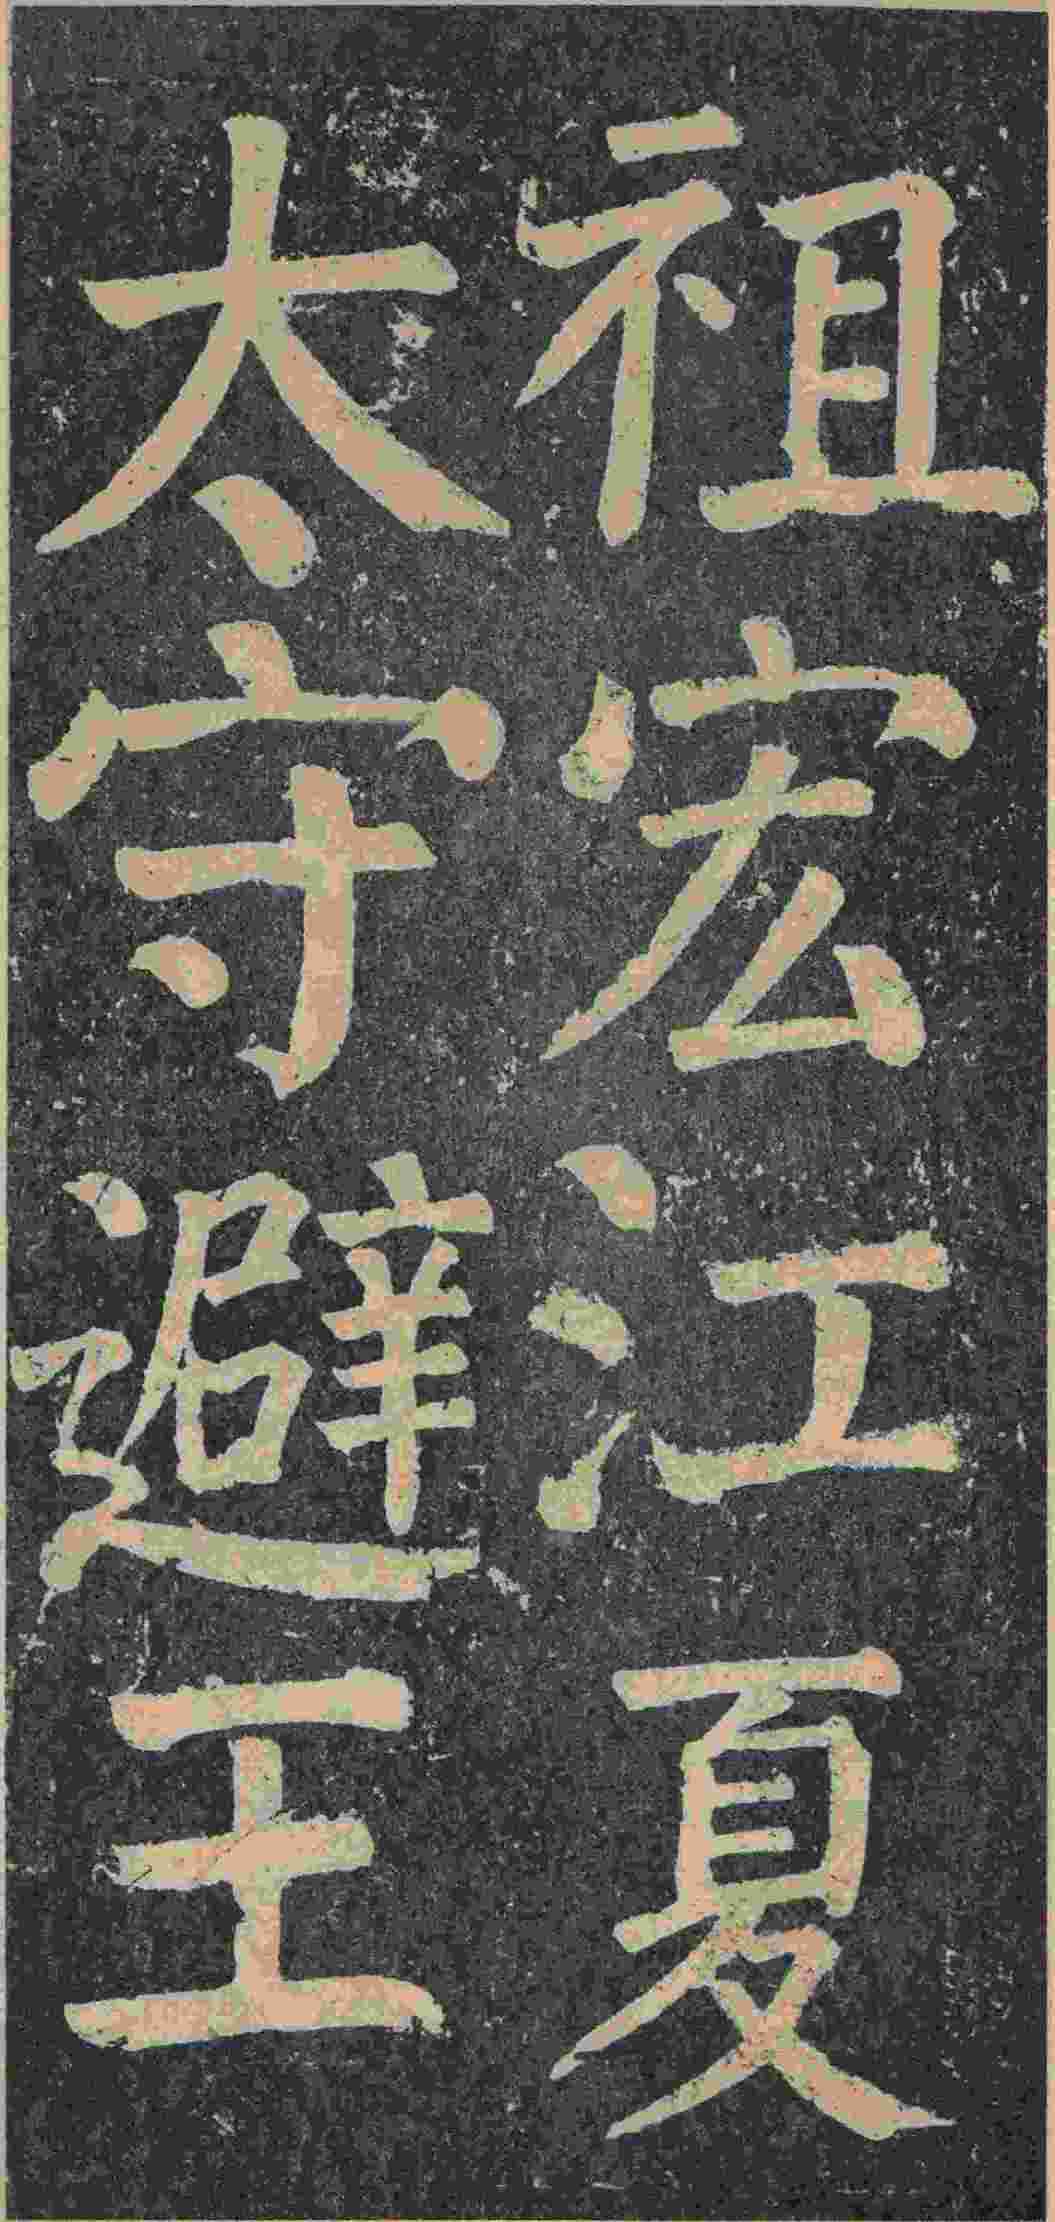 祖宏江夏
太守避王